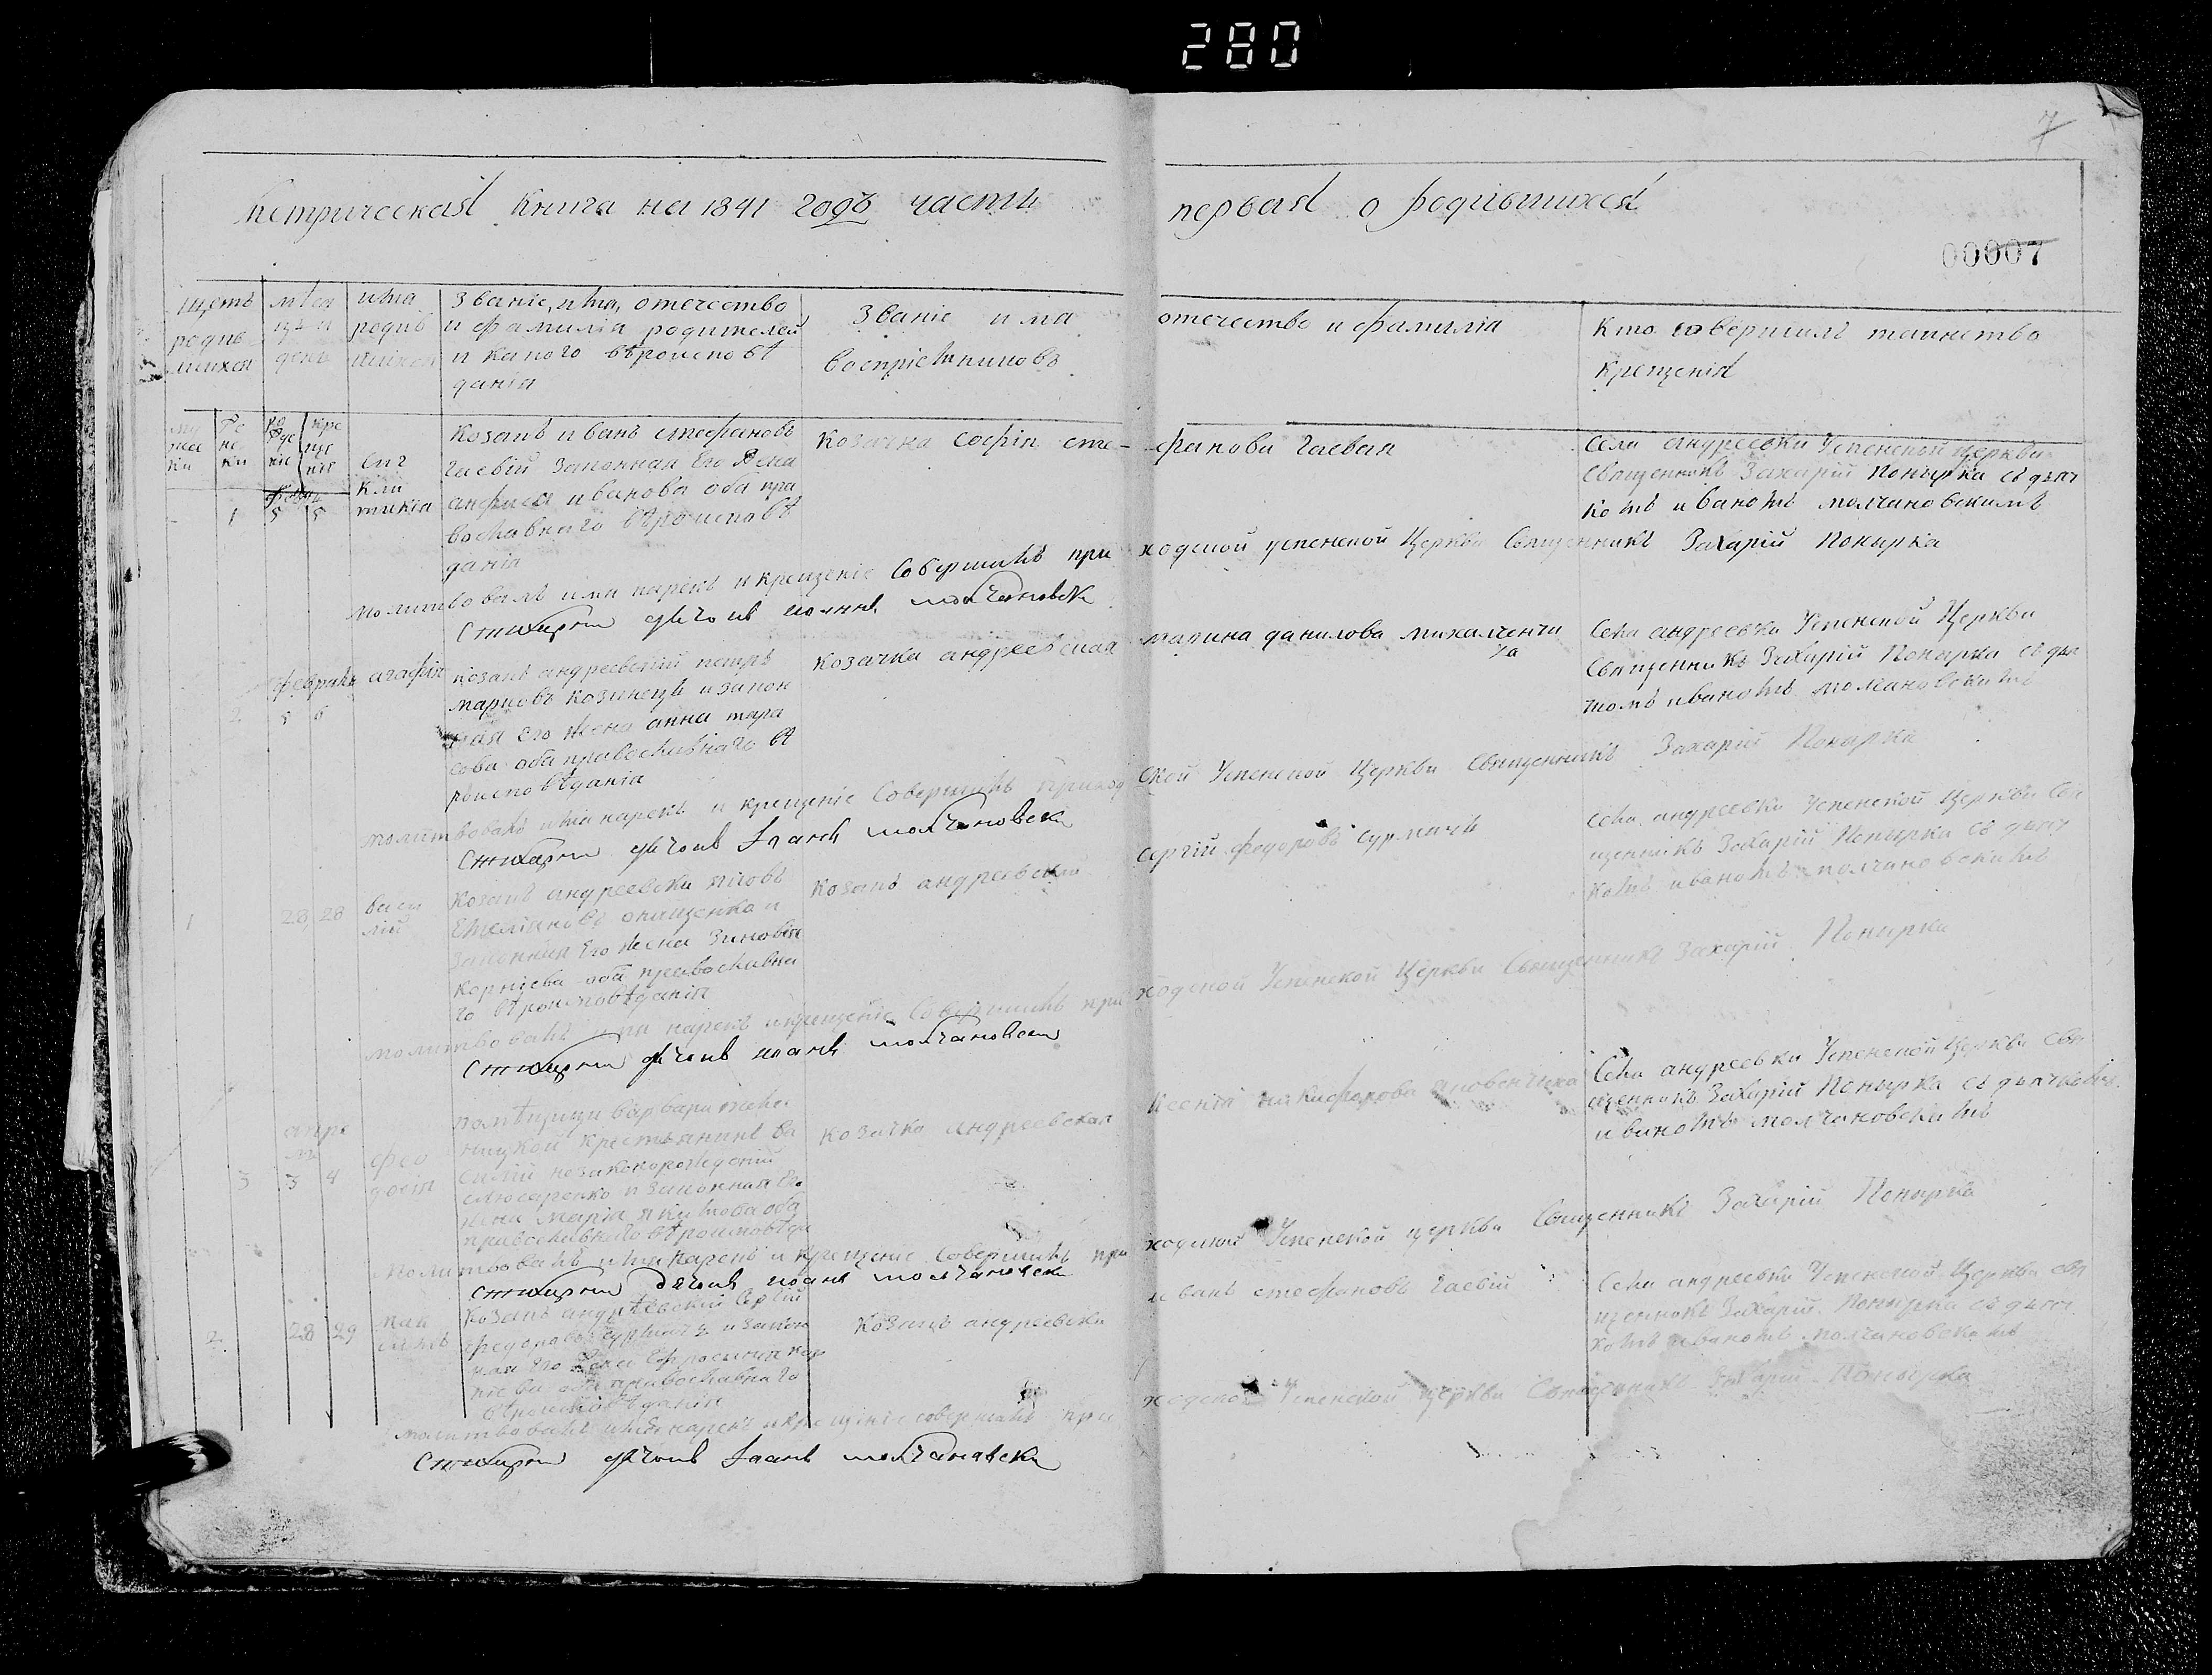 280
7
Метрическая книга на 1841 годъ часть первая о родившихся
00007
щетъ родив шихся
мѣся цъ и день
имя родив шихся
Званіе, имя, отечество
и фамилія родителей
и какого вѣроисповѣ
данія
Званіе имя отечество и фамилія
воспріемниковъ
Кто совершилъ таинство
крещенія
му жес ки
же нс ки
ро жде ніе
кре ще ніе
1 5 5
Сиг кли тикія
козакъ иванъ стефановъ
гаевій законная Его Жена
анфиса иванова оба пра
вославнаго вѣроисповѣ
данія
козачка софія сте- фанова гаевая
Села андреевки Успенской церкви
Священникъ Захарій Понырка съ дьяч
комъ иваномъ молчановскимъ
молитвовалъ имя нарекъ и крещеніе совершилъ при ходской успенской Церкви Священникъ Захарій Понырка
Стихарни дячокъ иоаннъ молчановски
февраль
2 5 6
агафія
козакъ андреевскій петръ
марковъ козинецъ и закон
ная его жена анна тара
сова оба православнаго вѣ
роисповѣданія
козачка андреевская марина данилова михалченки
Села андреевки Успенской Церкви
Священникъ Захарій Понырка съ дья
чкомъ иваномъ молчановскимъ
молитвовалъ имя нарекъ и крещеніе Совершилъ приход ской Успенской Церкви Священникъ Захарій Понырка
Стихарни дячокъ Іоанъ молчановски
1 28 28
васи лій
Козакъ андреевки яковъ
Емеліановъ онищенко и
законная Его жена Зиновія
корніева оба православна
го вѣроисповѣданія
козакъ андреевскій сергій федоровъ сурмачъ
Села андреевки Успенской Церкви Свя
щенникъ Захарій Понырка съ дьяч
комъ иваномъ молчановскимъ
молитвовалъ имя нарекъ и крещеніе Совершилъ при ходской Успенской Церкви Священникъ Захарій Понырка
Стихарни дячокъ иоанъ молчановски
апре ль
3 3 4
фео досія
помѣщици варвари
крестьянинъ ва
силій незаконорожденій
слюсаренко и законная Его
жена марія якимова оба
православнаго вѣроисповѣда
козачка андреевская ксенія никифорова
Села андреевки Успенской Церкви Свя
щенникъ Захарій Понырка съ дьячкомъ
иваномъ молчановскимъ
молитвовалъ имя нарекъ и крещеніе Совершилъ при ходской Успенской церкви Священникъ Захарій Понырка
Стихарни дячокъ иоанъ молчановски
2 28 29
мак симъ
козакъ андреевскій Сергій
федоровъ сурмачъ и закон
ная его жена Ефросинія кор
ніева оба православнаго
вѣроисповѣданія
Козакъ андреевки иванъ стефановъ гаевій
Села андреевки Успенской Церкви свя
щенникъ Захарій Понырка съ дьяч
комъ иваномъ молчановскимъ
молитвовалъ имя нарекъ и крещеніе совершилъ при ходской Успенской церкви Священникъ Захарій Понырка
Стихарни дячокъ Іоанъ молчановски